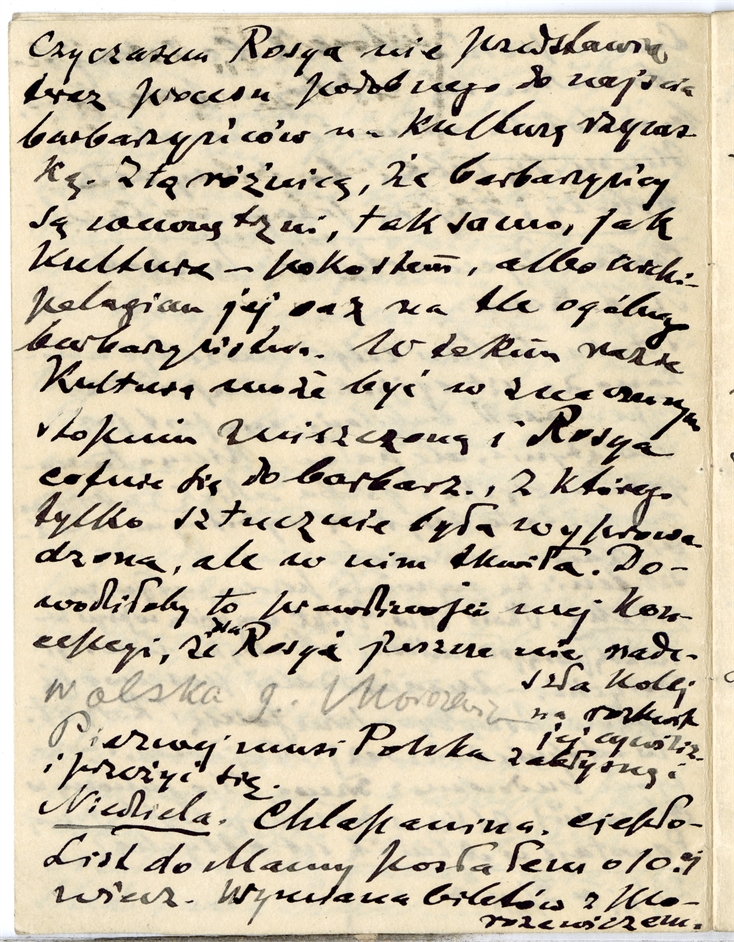 Czyczasem Rosya nie przedstawia
teraz procesu podobnego do najścia
barbarzyńców na Kulturę rzyms-
Ką. Z tą różnicą, że barbarzyńcy
są wewnętrzni, tak samo, jak
Kultura – pokostem, albo archi-
pelagiem jej oaz na tle ogólnego
barbarzyństwa. W takim razie
Kultura może być w znacznym
stopniu zniszczoną i Rosya
cofnie się do barbarz., z którego
tylko sztucznie była wyprowa-
dzona, ale w nim tkwiła. Do-
wodziłoby to prawdziwości mej Kon-
cepcyi, że na Rosyę jeszcze nie nade-
szła Kolej
na rozkwit
jej cywiliz.
Wolska g. Morozewicz
Pierwej musi Polska zabłysnąć
i przeżyć się.
Niedziela. Chlapanina. ciepło-
List do Mamy posłałem o 10.ej
wiecz. Wymiana biletów z Mo-
rozewiczem.